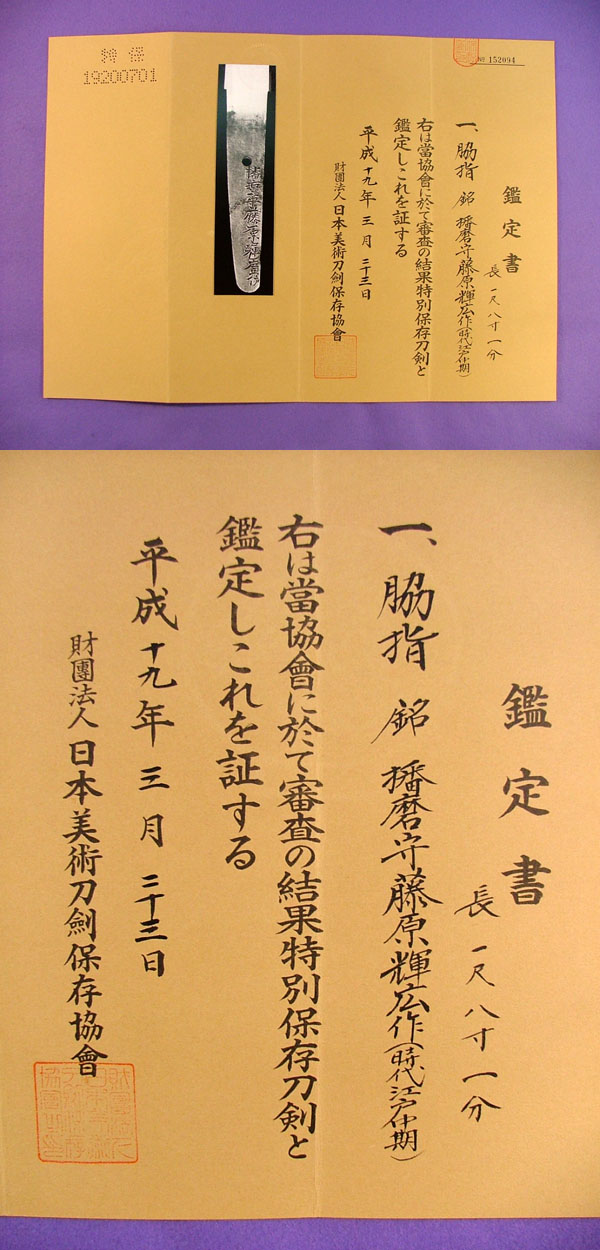 特保
19200701
№ 152094
鑑定書
一、脇指 銘 播磨守藤原輝広作(時代江戸中期)
長 一尺八寸一分
右は當協會に於て審査の結果特別保存刀剣と
鑑定しこれを証する
平成十九年三月二十三日
財團法人日本美術刀劍保存協會
鑑定書
長 一尺八寸一分
一、脇指 銘 播磨守藤原輝広作(時代江戸中期)
右は當協會に於て審査の結果特別保存刀剣と
鑑定しこれを証する
平成十九年三月二十三日
財團法人日本美術刀劍保存協會